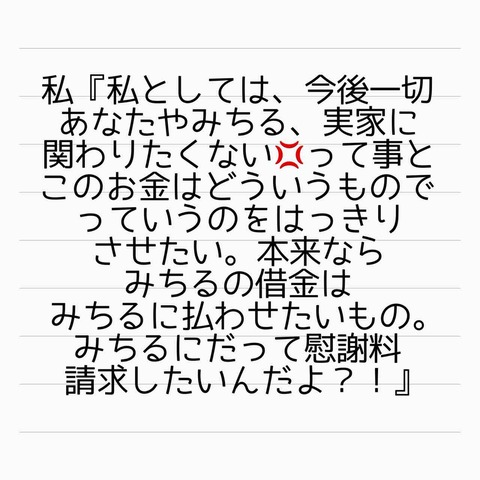 私『私としては、今後一切
あなたやみちる、実家に
関わりたくない💢って事と
このお金はどういうもので
っていうのをはっきり
させたい。本来なら
みちるの借金は
みちるに払わせたいもの。
みちるにだって慰謝料
請求したいんだよ？！』